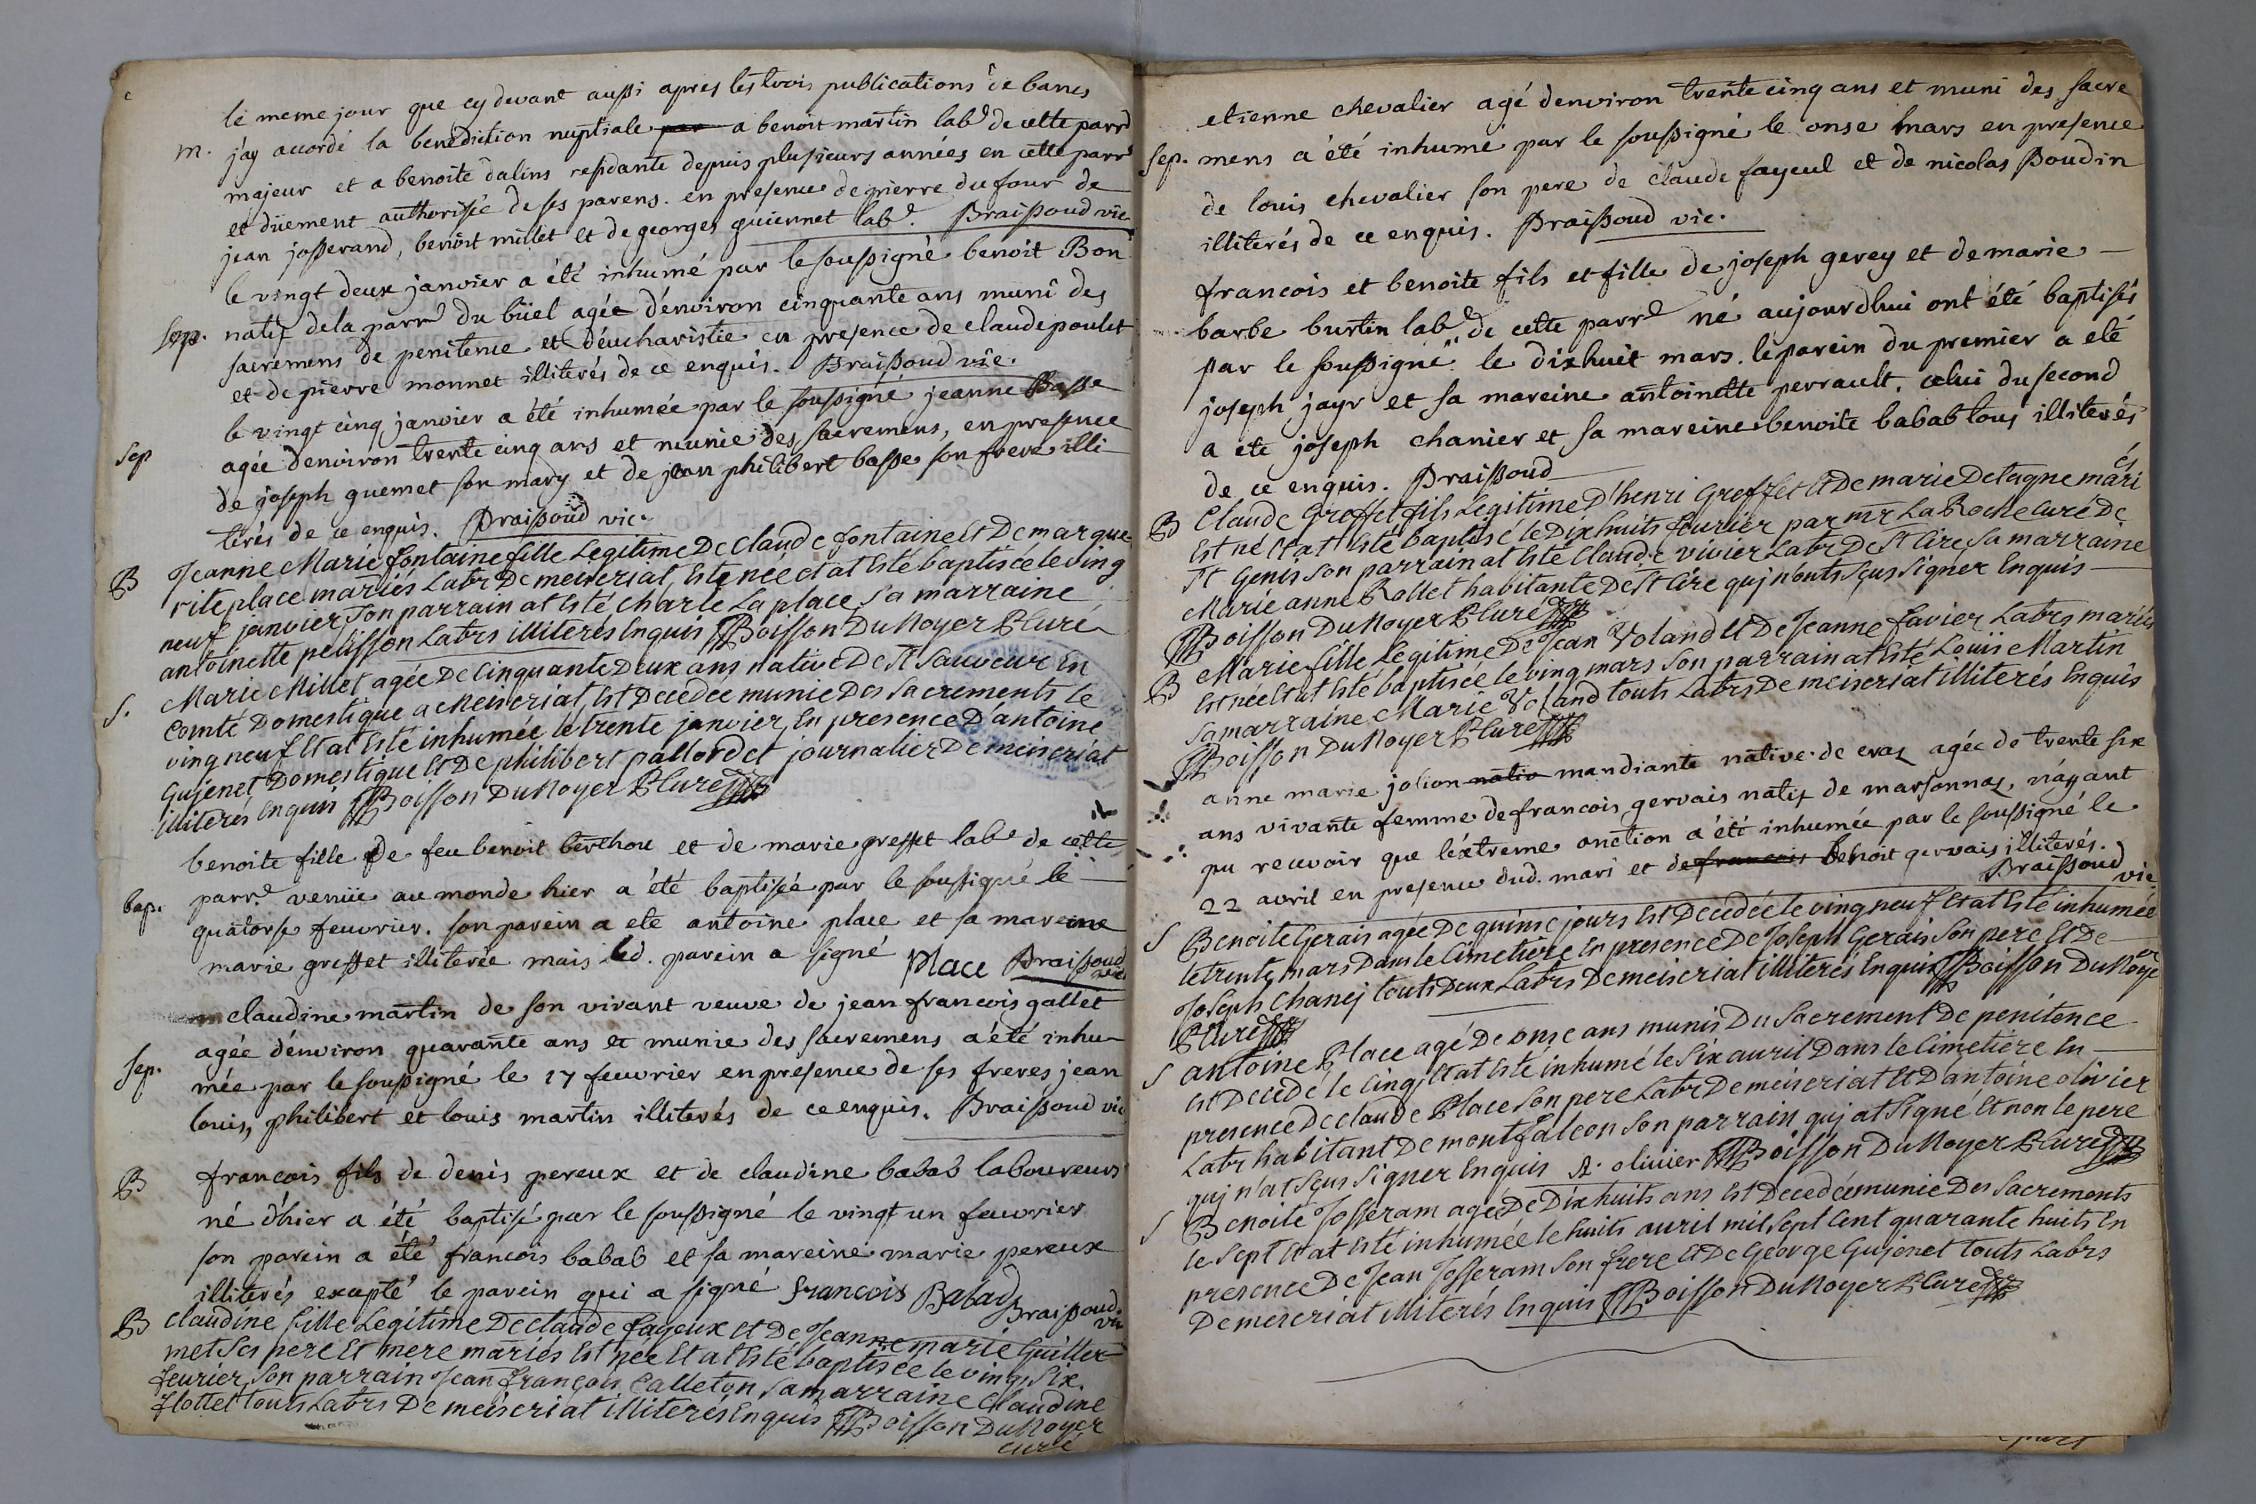 le meme jour que cy devant aussi apres les trois publications de bancs
m. j'ay accordé la benediction nuptiale par a benoit martin lab.r de cette parr.e
majeur et a benoite dalins residante depuis plusieurs années en cette parr.e
et düement authorisée de ses parens. en presence de pierre dufour de
jean josserand, benoit milet et de georges guiennet lab.r. Braissoud vic.
le vingt deux janvier a été inhumé par le soussigné benoit Bon
sep. natif de la parr.e du büel agée d'environ cinquante ans muni des
sacremens de penitence et d'éucharistie en presence de claude poulet
et de pierre monnet illiterés de ce enquis. Braissoud vic.
le vingt cinq janvier a été inhumée par le soussigné jeanne Basse
sep agée denviron trente cinq ans et munie des sacremens, en presence
de joseph guemet son mary et de jean philibert basse son frere illi
terés de ce enquis. Braissoud vic.
B Jeanne Marie fontaine fille Legitime De Claude fontaine Et De margue
rite place mariés Labrs De meiseriat, Est nee et at Esté baptiseé le ving
neuf janvier Son parrain at Esté Charle La place Sa marraine
antoinette pelisson Labrs illiterés Enquis Boisson Du Noyer Curé
S. Marie Millet agée De Cinquante Deux ans native De St Sauveur En
Comté Domestique a Meiseriat, Est Decedee munie Des Sacrements Le
ving neuf Et at Esté inhumée le trente janvier, En presence D'antoine
Gujenet Domestique Et De philibert pallordet journalier De meiseriat
illiterés Enquis Boisson Du Noyer Curé
benoite fille de feu benoit berthou et de marie gresset lab.r de cette
bap. parr.e venüe au monde hier a été baptisée par le soussigné le
quatorse feuvrier. son parein a ete antoine place et sa mareine
marie gresset illiterée mais led. parein a signé place Braissoud vic
claudine martin de son vivant veuve de jean francois gallet
sep. agée d'environ quarante ans et munie des sacremens a été inhu
mée par le soussigné le 17 feuvrier en presence de ses freres jean
louis, philibert et louis martin illiterés de ce enquis. Braissoud vic
B francois fils de denis pereux et de claudine babad laboureurs
né d'hier a été baptisé par le soussigné le vingt un feuvrier
son parein a été francois babad et sa mareine marie pereux
illiterés excepté le parein qui a signé francois Babad Braissoud. vic
B Claudine fille Legitime De Claude fayeux Et De Jeanne marie Guiller
met Ses pere Et mere mariés Est née Et at Esté baptisée le ving Six
feurier, Son parrain Jean françois Calleton Sa marraine Claudine
flottet touts Labrs De meiseriat illiterés Enquis Boisson Du Noyer
curé
etienne chevalier agé denviron trente cinq ans et muni des sacre
sep. mens a été inhumé par le soussigné le onse mars en presence
de louis chevalier son pere de claude fayeul et de nicolas Boudin
illiterés de ce enquis. Braissoud vic.
francois et benoite fils et fille de joseph gerey et de marie
barbe burtin lab.r de cette parr.e né aujourdhui ont été baptisés
par le soussigné le dixhuit mars. le parein du premier a eté
joseph jayr et sa mareine antoinette perrault. celui du second
a ete joseph chanier et sa mareine benoite babad tous illiterés
de ce enquis. Braissoud
B Claude Greffet fils Legitime D'henri Greffet Et De marie Detagne mariés
Est né Et at Esté baptisé le Dix huits feurier par mr La Roche Curé De
St Genis Son parrain at Esté Claude vivier Labr De St Cire Sa marraine
Marie anne Rollet habitante De St Cire quj n'onts Sçus Signer Enquis
Boisson Du Noyer Curé
B Marie fille Legitime De Jean Voland Et De Jeanne favier Labrs mariés
Est née Et at Esté baptisée le ving mars Son parrain at Esté Loüis Martin
Sa marraine Marie Voland touts Labrs De meiseriat illiterés Enquis
Boisson Du Noyer Curé
anne marie jolion nativ mandiante native de cras agée de trente six
ans vivante femme de francois gervais natif de marsonnas, n'ayant
pu recevoir que l'éxtreme onction a été inhumée par le soussigné le
22 avril en presence dud. mari et de francois benoit gervais illiterés.
Braissoud vic
S Benoite Gerais agée De quinse jours Est Decedée le ving neuf Et at Esté inhumée
le trente mars Dans le Cimetiere En presence De Joseph Gerais Son pere Et De
Joseph Chanej touts Deux Labrs De meiseriat illiterés Enquis Boisson Du Noyer
Curé
S antoine Place agé De onse ans munis Du Sacrement De penitence
Est Decedé le Cinq, Et at Esté inhumé le Six auril Dans le Cimetiere En
presence De claude Place Son pere Labr De meiseriat Et D'antoine olivier
Labr habitant De montfalcon Son parrain quj at Signé Et non le pere
quj n'at Sçus Signer Enquis A. oliuier Boisson Du Noyer Curé
S Benoite Josseram agée De Dix huits ans Est Decedée munie Des Sacrements
le Sept Et at Esté inhumée le huits auril mil Sept Cent quarante huits En
presence De Jean Josseram Son frere Et De George Gujenet touts Labrs
De meseriat illiterés Enquis Boisson Du Noyer Curé